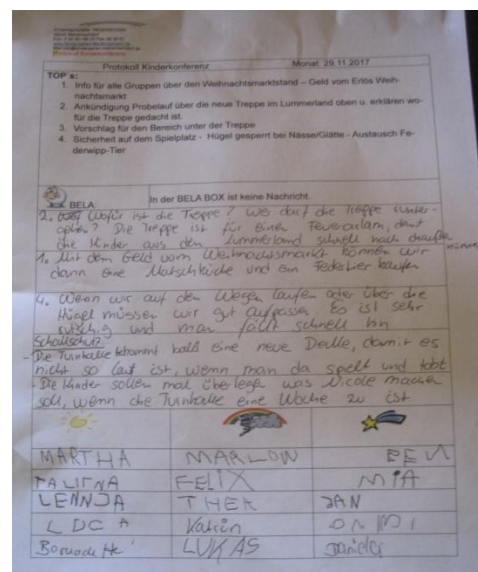 Protokoll Kinderkonferenz Monat 29.11.2017
TOP s:
1. Info für alle Gruppen über den Weihnachtsmarktstand – Geld vom Erlös Weih-
nachtsmarkt
2. Ankündigung Probelauf über die neue Treppe im Lummerland oben u. erklären wo-
für die Treppe gedacht ist.
3. Vorschlag für den Bereich unter der Treppe
4. Sicherheit auf dem Spielplatz - Hügel gesperrt bei Nässe/Glätte - Austausch Fe-
derwipp-Tier
BELA: In der BELA BOX ist keine Nachricht.
2. Wofür ist die Treppe? Wer darf die Treppe runter-
gehen? Die Treppe ist für einen Feueralarm, damit
die Kinder aus dem Lummerland schnell nach draußen
können
1. Mit dem Geld vom Weihnachtsmarkt können wir
dann eine Matschküche und ein Federtier kaufen
4. Wenn wir auf den Wegen laufen oder über die
Hügel müssen wir gut aufpassen. Es ist sehr
rutschig und man fällt schnell hin
Schallschutz
- Die Turnhalle bekommt bald eine neue Decke, damit es
nicht so laut ist, wenn man da spielt und tobt
- Die Kinder sollen mal überlegen was Nicole machen
soll, wenn die Turnhalle eine Woche zu ist
MARTHA MARLOW BEN
FELIX MIA
LENNJA THEA JAN
LUCA Katrin
LUKAS